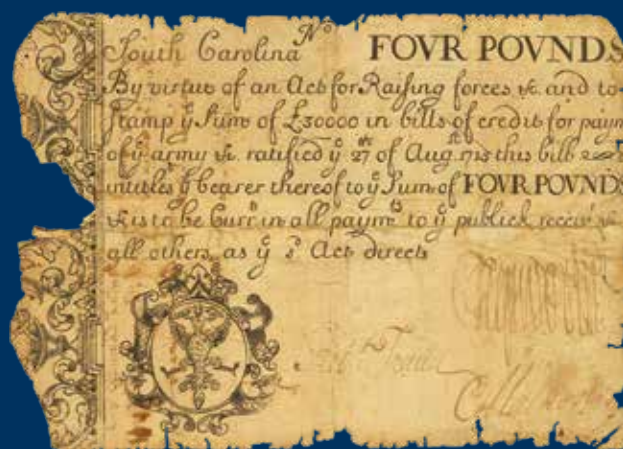 South Carolina Nº FOVR POVNDS
By virtue of an Act for Raising forces &c. and to
stamp yͤ Sum of £30000 in bills of credit for paym
of yͤ army &c. ratified yͤ 27ᵗʰ of Augˢᵗ 1715 this bill
intitles yͤ bearer thereof to yͤ Sum of FOVR POVNDS
& is to be Currᵗ in all paymᵗˢ to yͤ publick receivʳ &
all others, as yͤ sᵈ Act directs